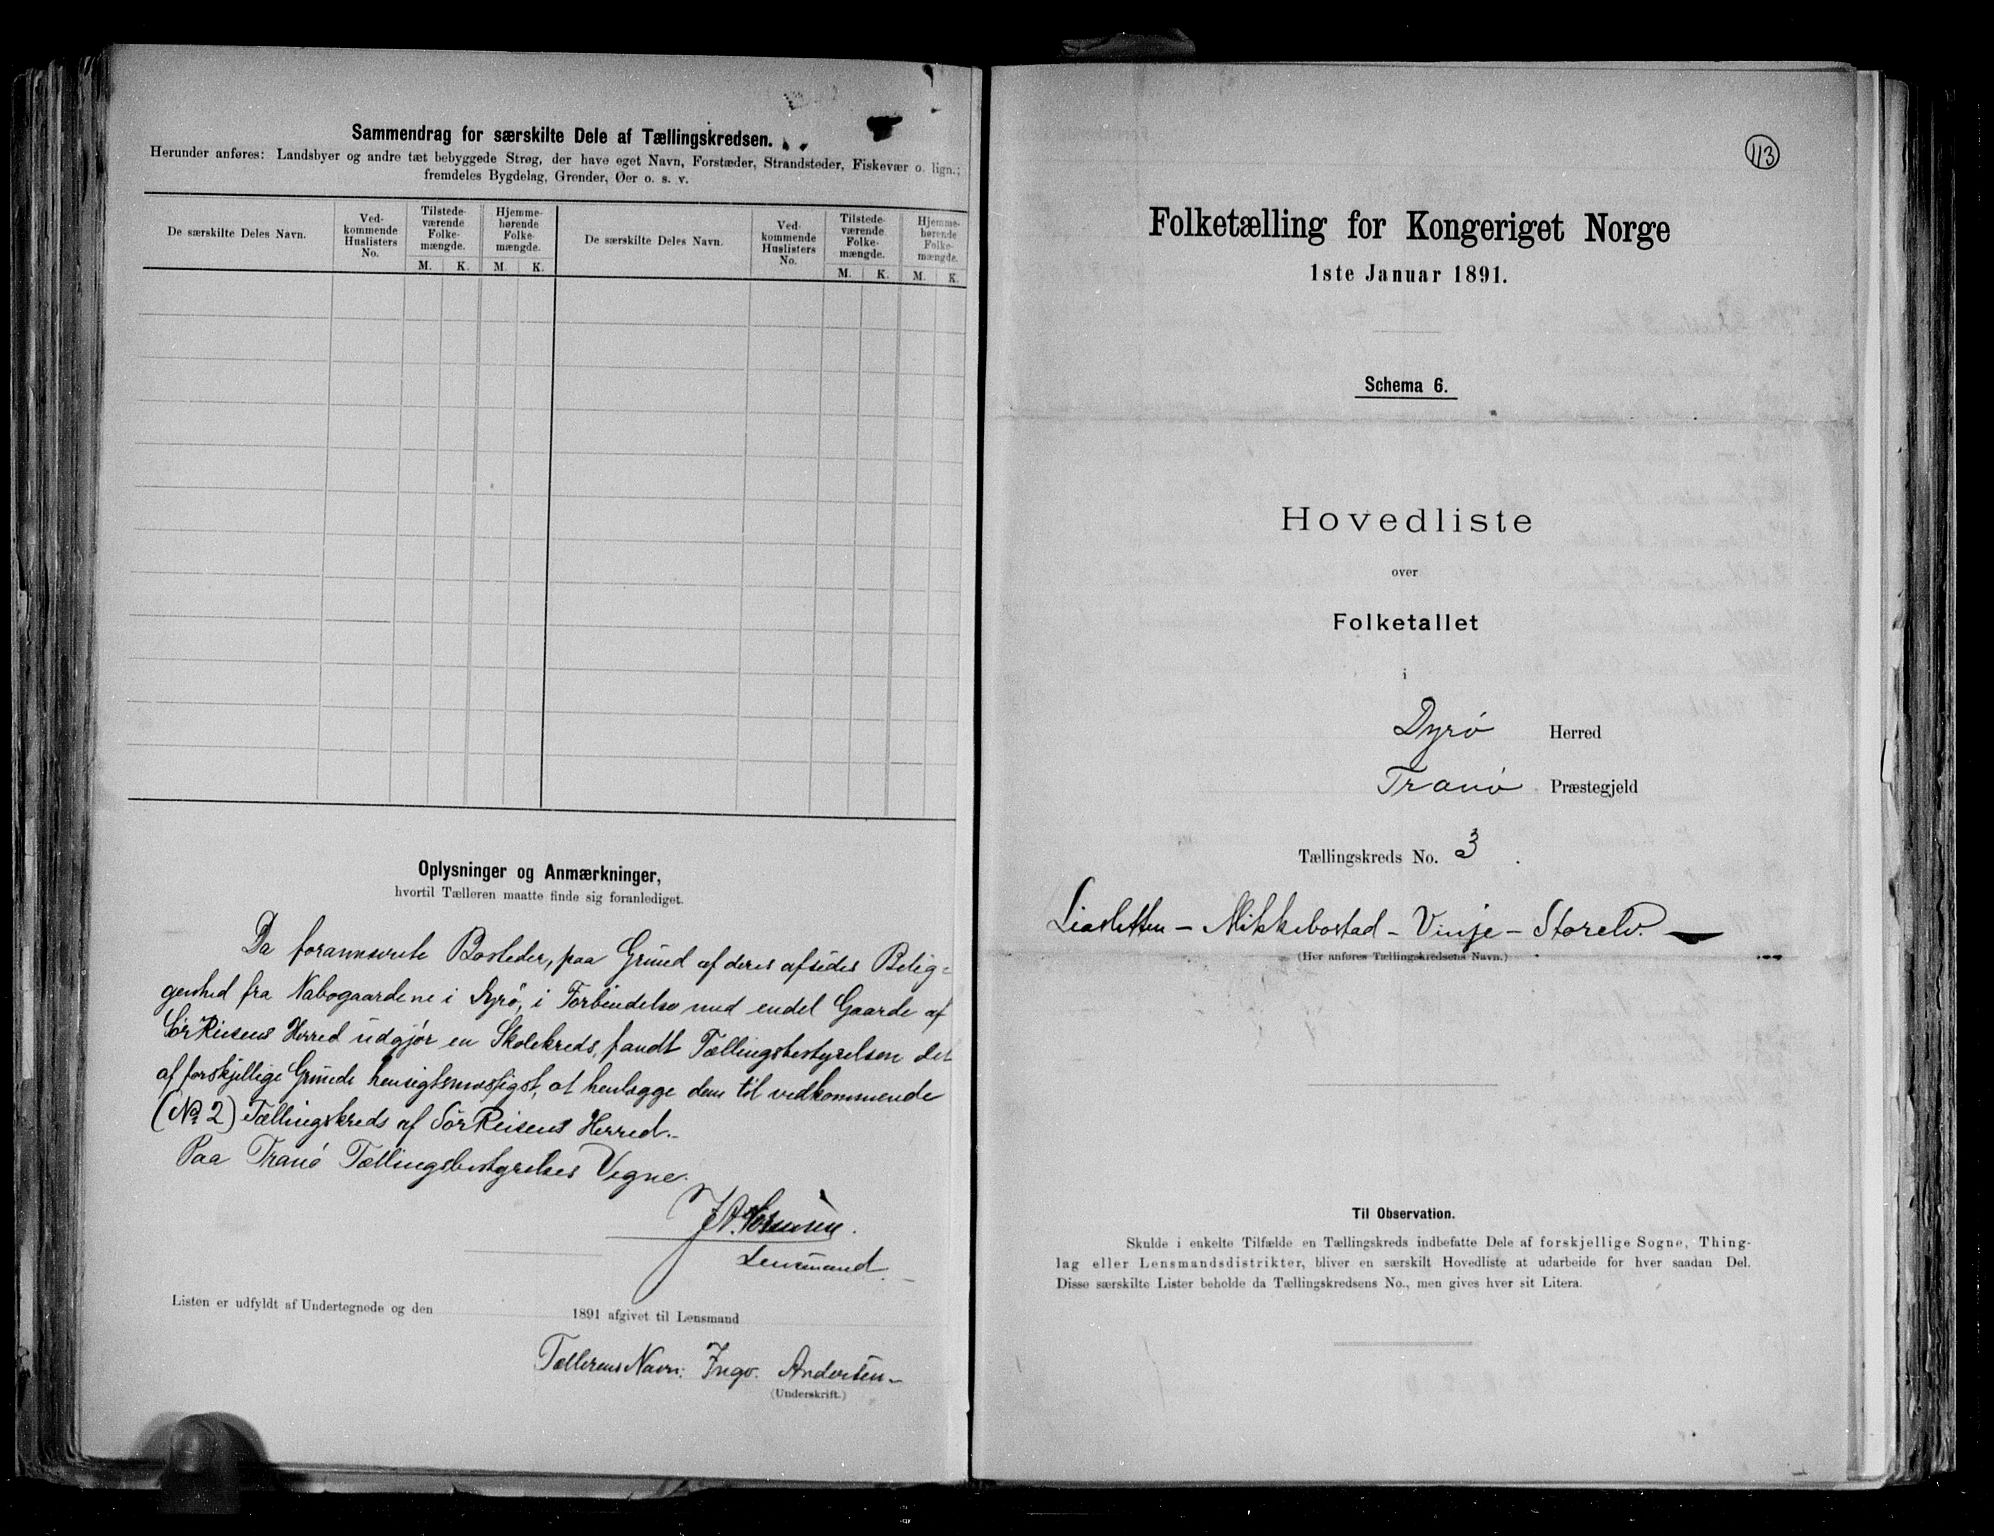 Sammendrag for særskilte Dele af Tællingskredsen.
Herunder anføres: Landsbyer og andre tæt bebyggede Strøg, der have eget Navn, Forstæder, Strandsteder, Fiskevær o. lign.;
fremdeles Bygdelag, Grender, Øer o. s. v.
De særskilte Deles Navn.
Ved-
kommende
Huslisters
No.
Tilstede-
værende
Folke-
mængde.
Hjemme-
hørende
Folke-
mængde.
De særskilte Deles Navn.
Ved-
kommende
Huslisters
No.
Tilstede-
værende
Folke-
mængde.
Hjemme-
hørende
Folke-
mængde.
M. K. M. K. M. K. M. K.
Oplysninger og Anmærkninger,
hvortil Tælleren maatte finde sig foranlediget.
Da forannævnte Bosteder, paa Grund af deres afsides Belig-
genhed fra Nabogaardene i Dyrø, i Forbindelse med endel Gaarde af
SørReisens Herred udgjør en Skolekreds, fandt Tællingsbestyrelsen det
af forskjellige Grunde hensigtsmæsigst, at henlægge dem til vedkommende
(No 2) Tællingskreds af SørReisens Herred.
Paa Tranø Tællingsbestyrelses Vegne.
Lensmand.
Listen er udfyldt af Undertegnede og den 1891 afgivet til Lensmand
Tællerens Navn: Ingv. Andersen
(Underskrift.)
113
Folketælling for Kongeriget Norge
1ste Januar 1891.
Schema 6.
Hovedliste
over
Folketallet
i
Dyrø Herred
Tranø Præstegjeld
Tællingskreds No. 3.
Liasletten – Mikkebostad – Vinje – Storelv.
(Her anføres Tællingskredsens Navn.)
Til Observation.
Skulde i enkelte Tilfælde en Tællingskreds indbefatte Dele af forskjellige Sogne, Thing-
lag eller Lensmandsdistrikter, bliver en særskilt Hovedliste at udarbeide for hver saadan Del.
Disse særskilte Lister beholde da Tællingskredsens No., men gives hver sit Litera.